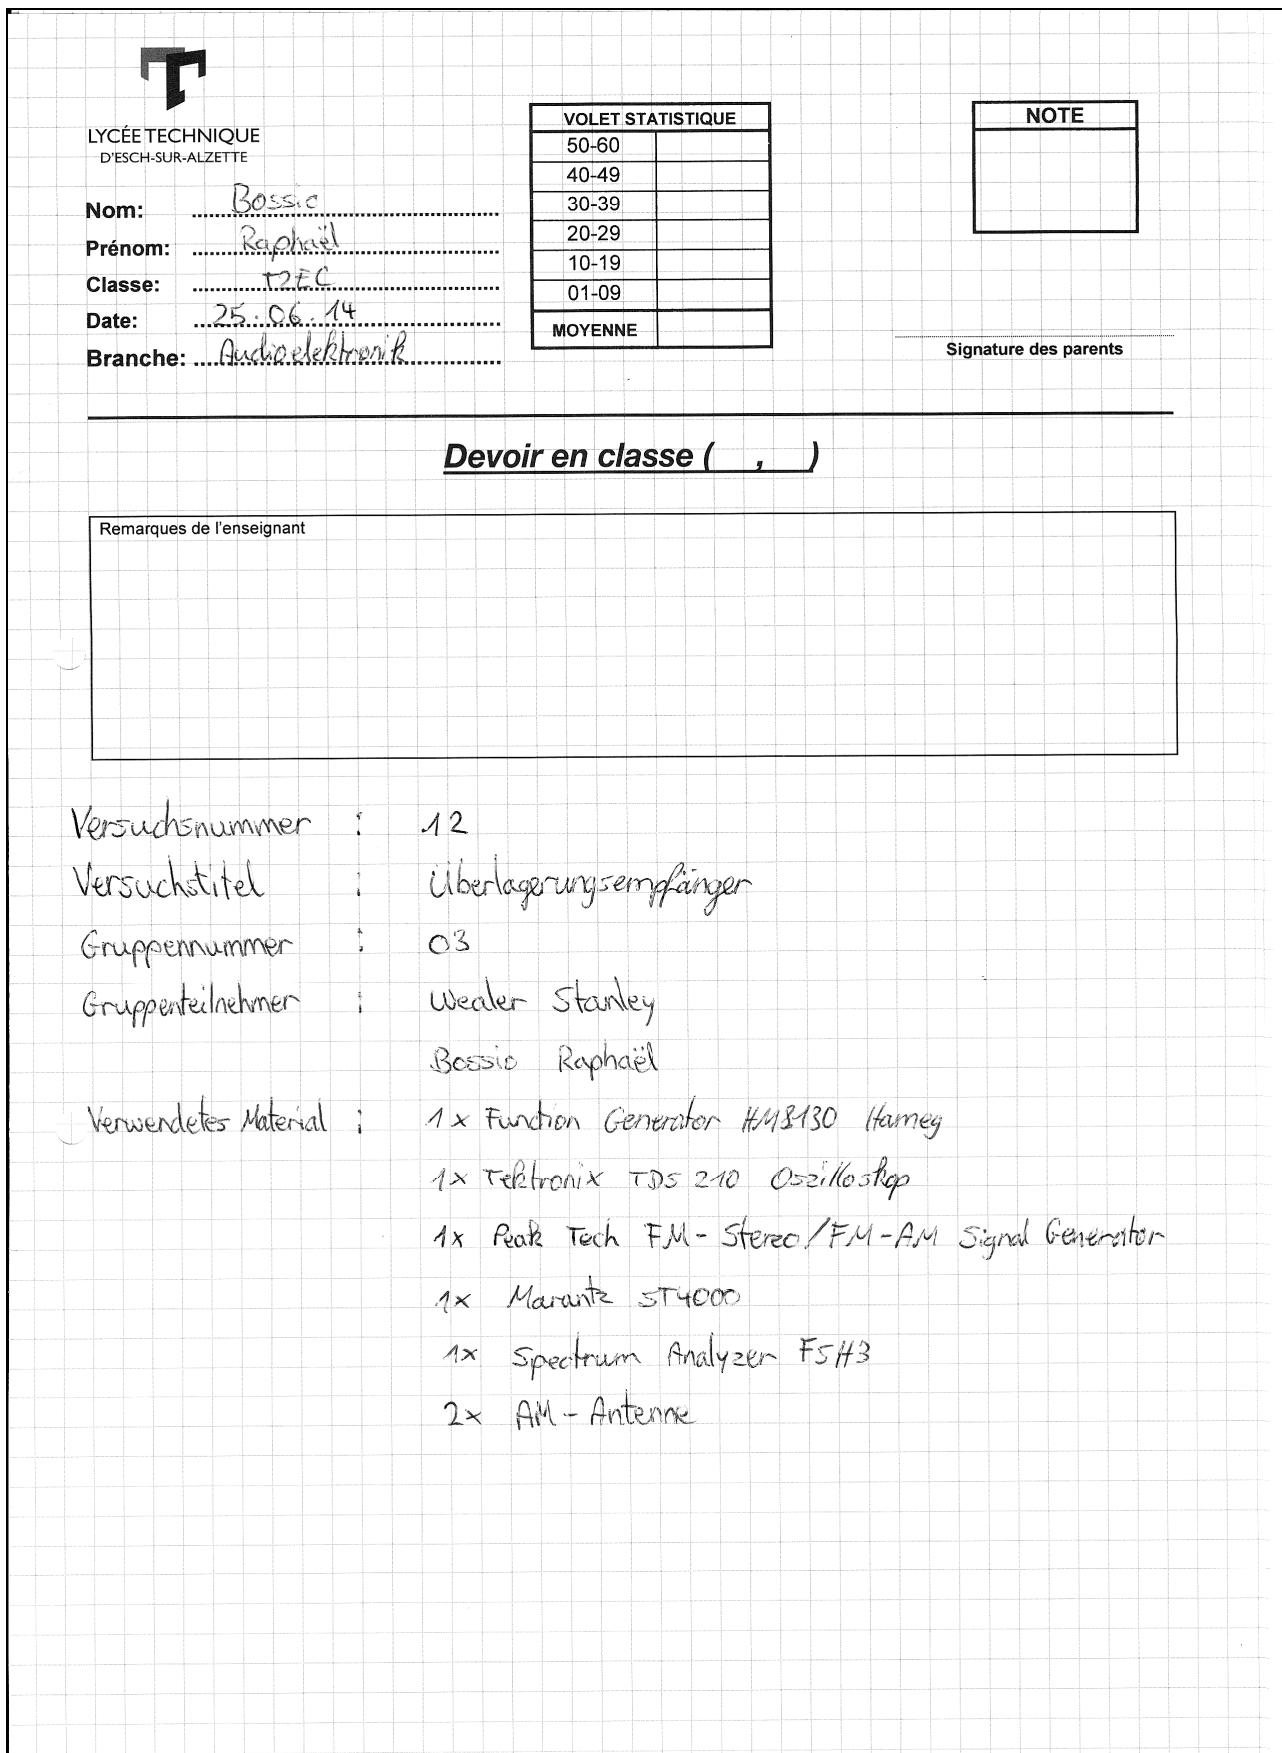 LYCÉE TECHNIQUE
D'ESCH-SUR-ALZETTE
Nom: Bossio
Prénom: Raphaël
Classe: T2EC
Date: 25.06.14
Branche: Audioelektronik
VOLET STATISTIQUE
50-60
40-49
30-39
20-29
10-19
01-09
MOYENNE
NOTE
Signature des parents
Devoir en classe ( , )
Remarques de l'enseignant
Versuchsnummer : 12
Versuchstitel : Überlagerungsempfänger
Gruppennummer : 03
Gruppenteilnehmer : Wealer Stanley
Bossio Raphaël
Verwendetes Material : 1x Function Generator HM8130 Hameg
1x Tektronix TDS 210 Oszilloskop
1x Peak Tech FM-Stereo/FM-AM Signal Generator
1x Marantz ST4000
1x Spectrum Analyzer FSH3
2x AM-Antenne